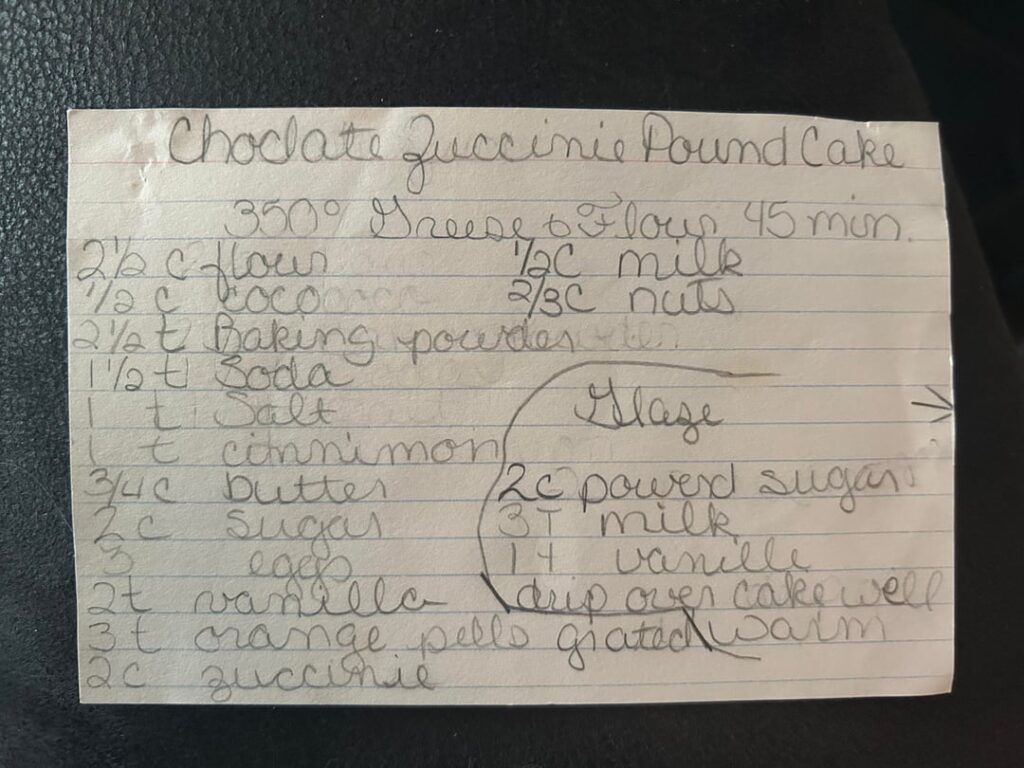 Choclate Zuccinie Pound Cake
350° Greese & Flour 45 min.
2 1/2 c flour
1/2 c coco
2 1/2 t Baking powder
1 1/2 t Soda
1 t Salt
1 t cinnimon
3/4 c butter
2 c sugar
3 eggs
2 t vanilla
3 t orange pells grated
2 c zuccinie
1/2 C milk
2/3 C nuts
Glaze
2 c powerd sugar
3 T milk
1 t vanille
drip over cake well
warm